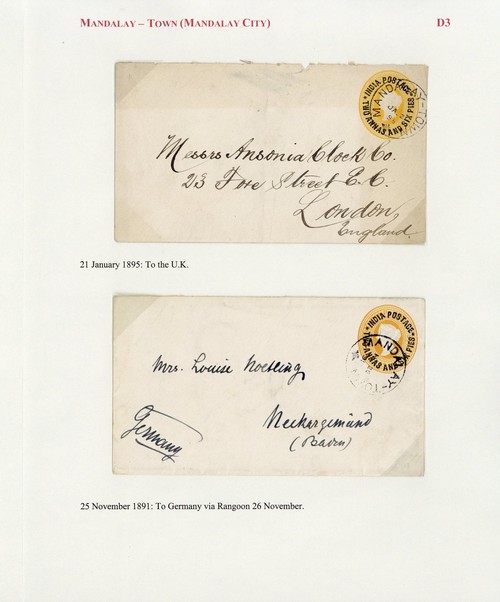 MANDALAY – TOWN (MANDALAY CITY)
D3
INDIA POSTAGE
TWO ANNAS AND SIX PIES
MANDALAY-TOWN
JA
Messrs Ansonia Clock Co.
23 Fore Street E.C.
London,
England.
21 January 1895: To the U.K.
INDIA POSTAGE
TWO ANNAS AND SIX PIES
MANDALAY-TOWN
Mrs. Louise Noetling,
Neckargemünd
(Baden)
Germany
25 November 1891: To Germany via Rangoon 26 November.